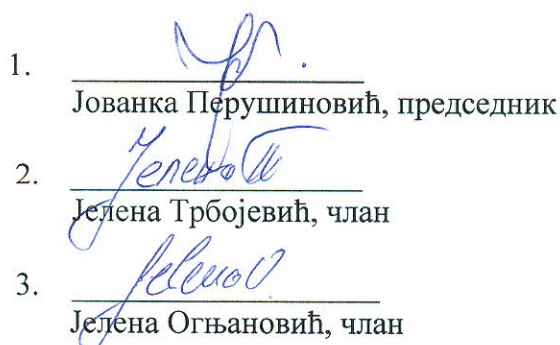 1.
Јованка Перушиновић, председник
2. Јелена Т
Јелена Трбојевић, члан
3. Јелена О
Јелена Огњановић, члан